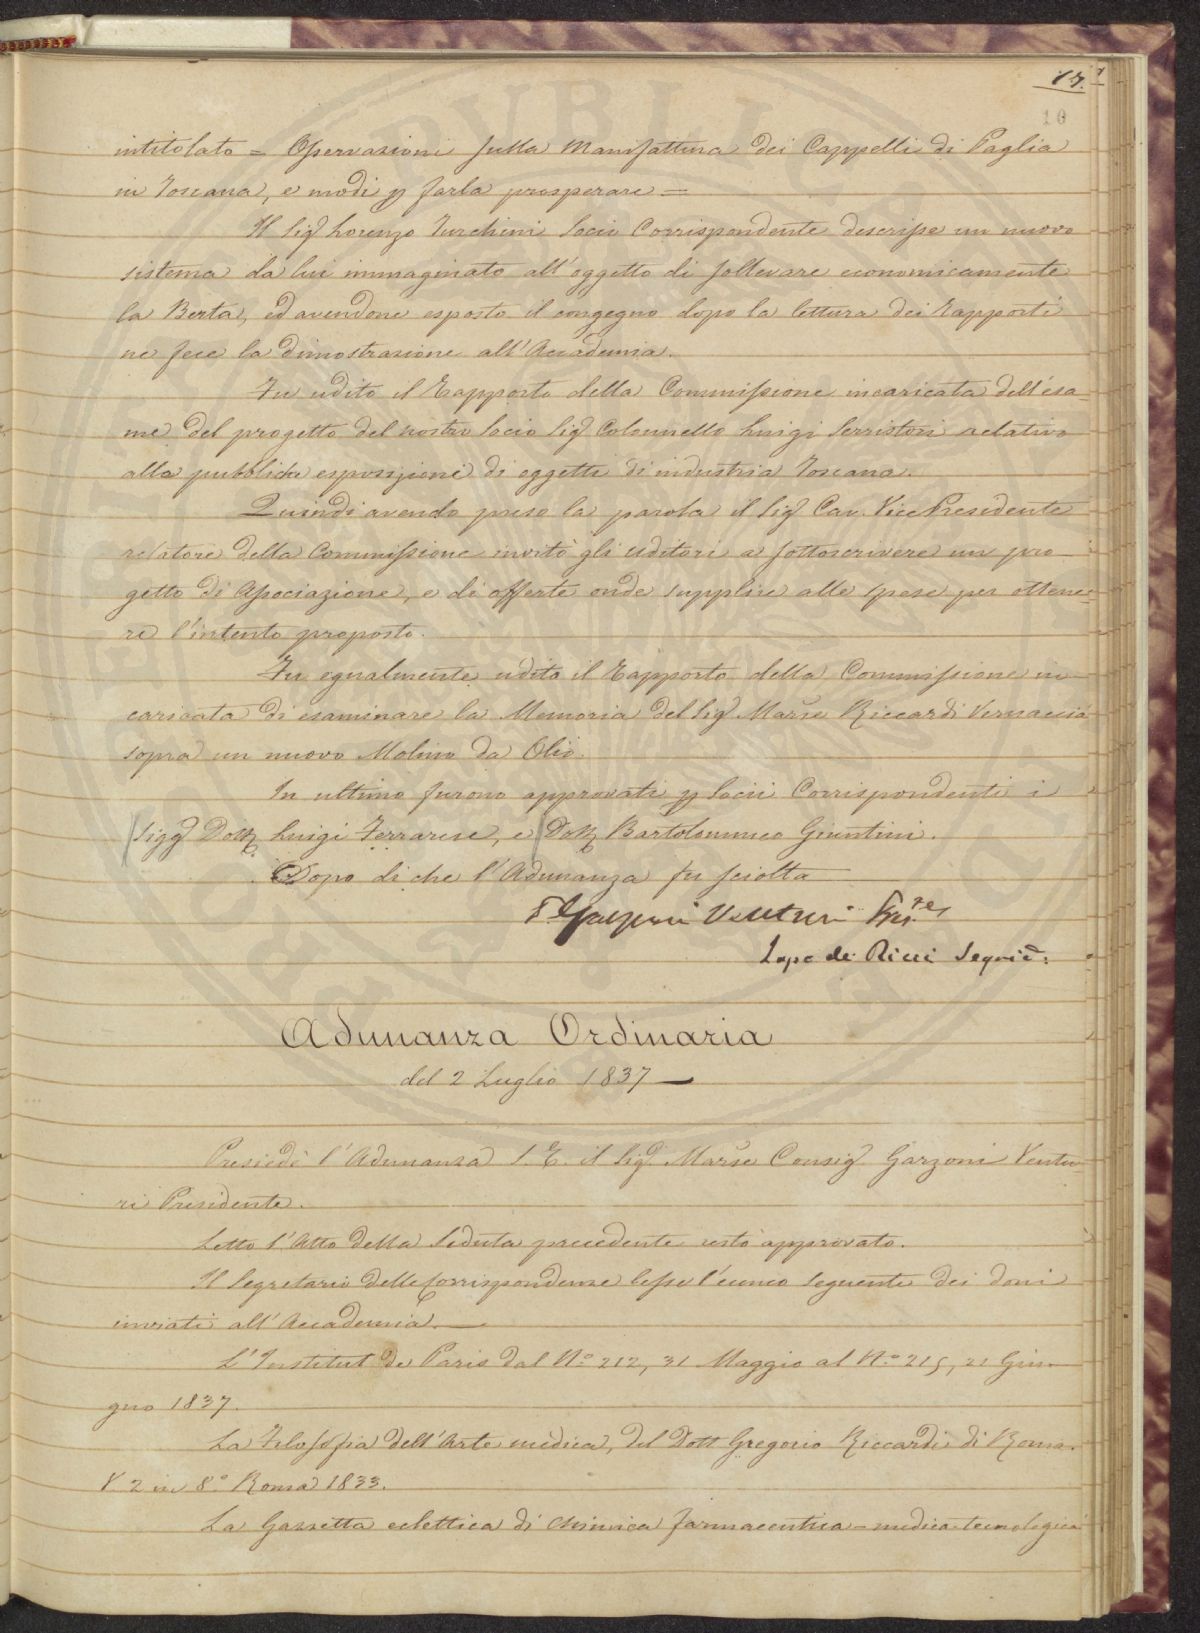 17.
10
intitolato = Osservazioni sulla Manifattura dei Cappelli di Paglia
in Toscana, e modi p farla prosperare =
Il Sigr Lorenzo Turchini Socio Corrispondente descrisse un nuovo
sistema da lui immaginato all'oggetto di sollevare economicamente
la Berta, ed avendone esposto il congegno dopo la lettura dei Rapporti
ne fece la dimostrazione all'Accademia.
Fu udito il Rapporto della Commissione incaricata dell'esa-
me del progetto del nostro Socio Sigr Colonnello Luigi Serristori relativo
alla pubblica esposizione di oggetti di industria Toscana.
Quindi avendo preso la parola il Sigr Cav. Vice Presidente
relatore della Commissione invitò gli uditori a sottoscrivere un pro-
getto di Associazione, e di offerte onde supplire alle spese per ottene-
re l'intento proposto.
Fu egualmente udito il Rapporto della Commissione in-
caricata di esaminare la Memoria del Sigr Marse Riccardi Vernaccia
sopra un nuovo Molino da Olio.
In ultimo furono approvati p Socii Corrispondenti i
Sigg Dott Luigi Ferrarese, e Dott Bartolommeo Giuntini.
Dopo di che l'Adunanza fu sciolta
Venturi Pres.te
Lapo de Ricci Segrio:
Adunanza Ordinaria
del 2 Luglio 1837
Presiedè l'Adunanza S. E. il Sigr Marse Consigr Garzoni Ventu-
ri Presidente.
Letto l'Atto della Seduta precedente restò approvato.
Il Segretario delle Corrispondenze lesse l'elenco seguente dei doni
inviati all'Accademia.
L'Institut de Paris dal No. 212, 31 Maggio al No. 215, 21 Giu-
gno 1837.
La Filosofia dell'Arte medica, del Dott Gregorio Riccardi di Roma.
V. 2 in 8.o Roma 1833.
La Gazzetta eclettica di chimica farmaceutica-medica-tecnologica